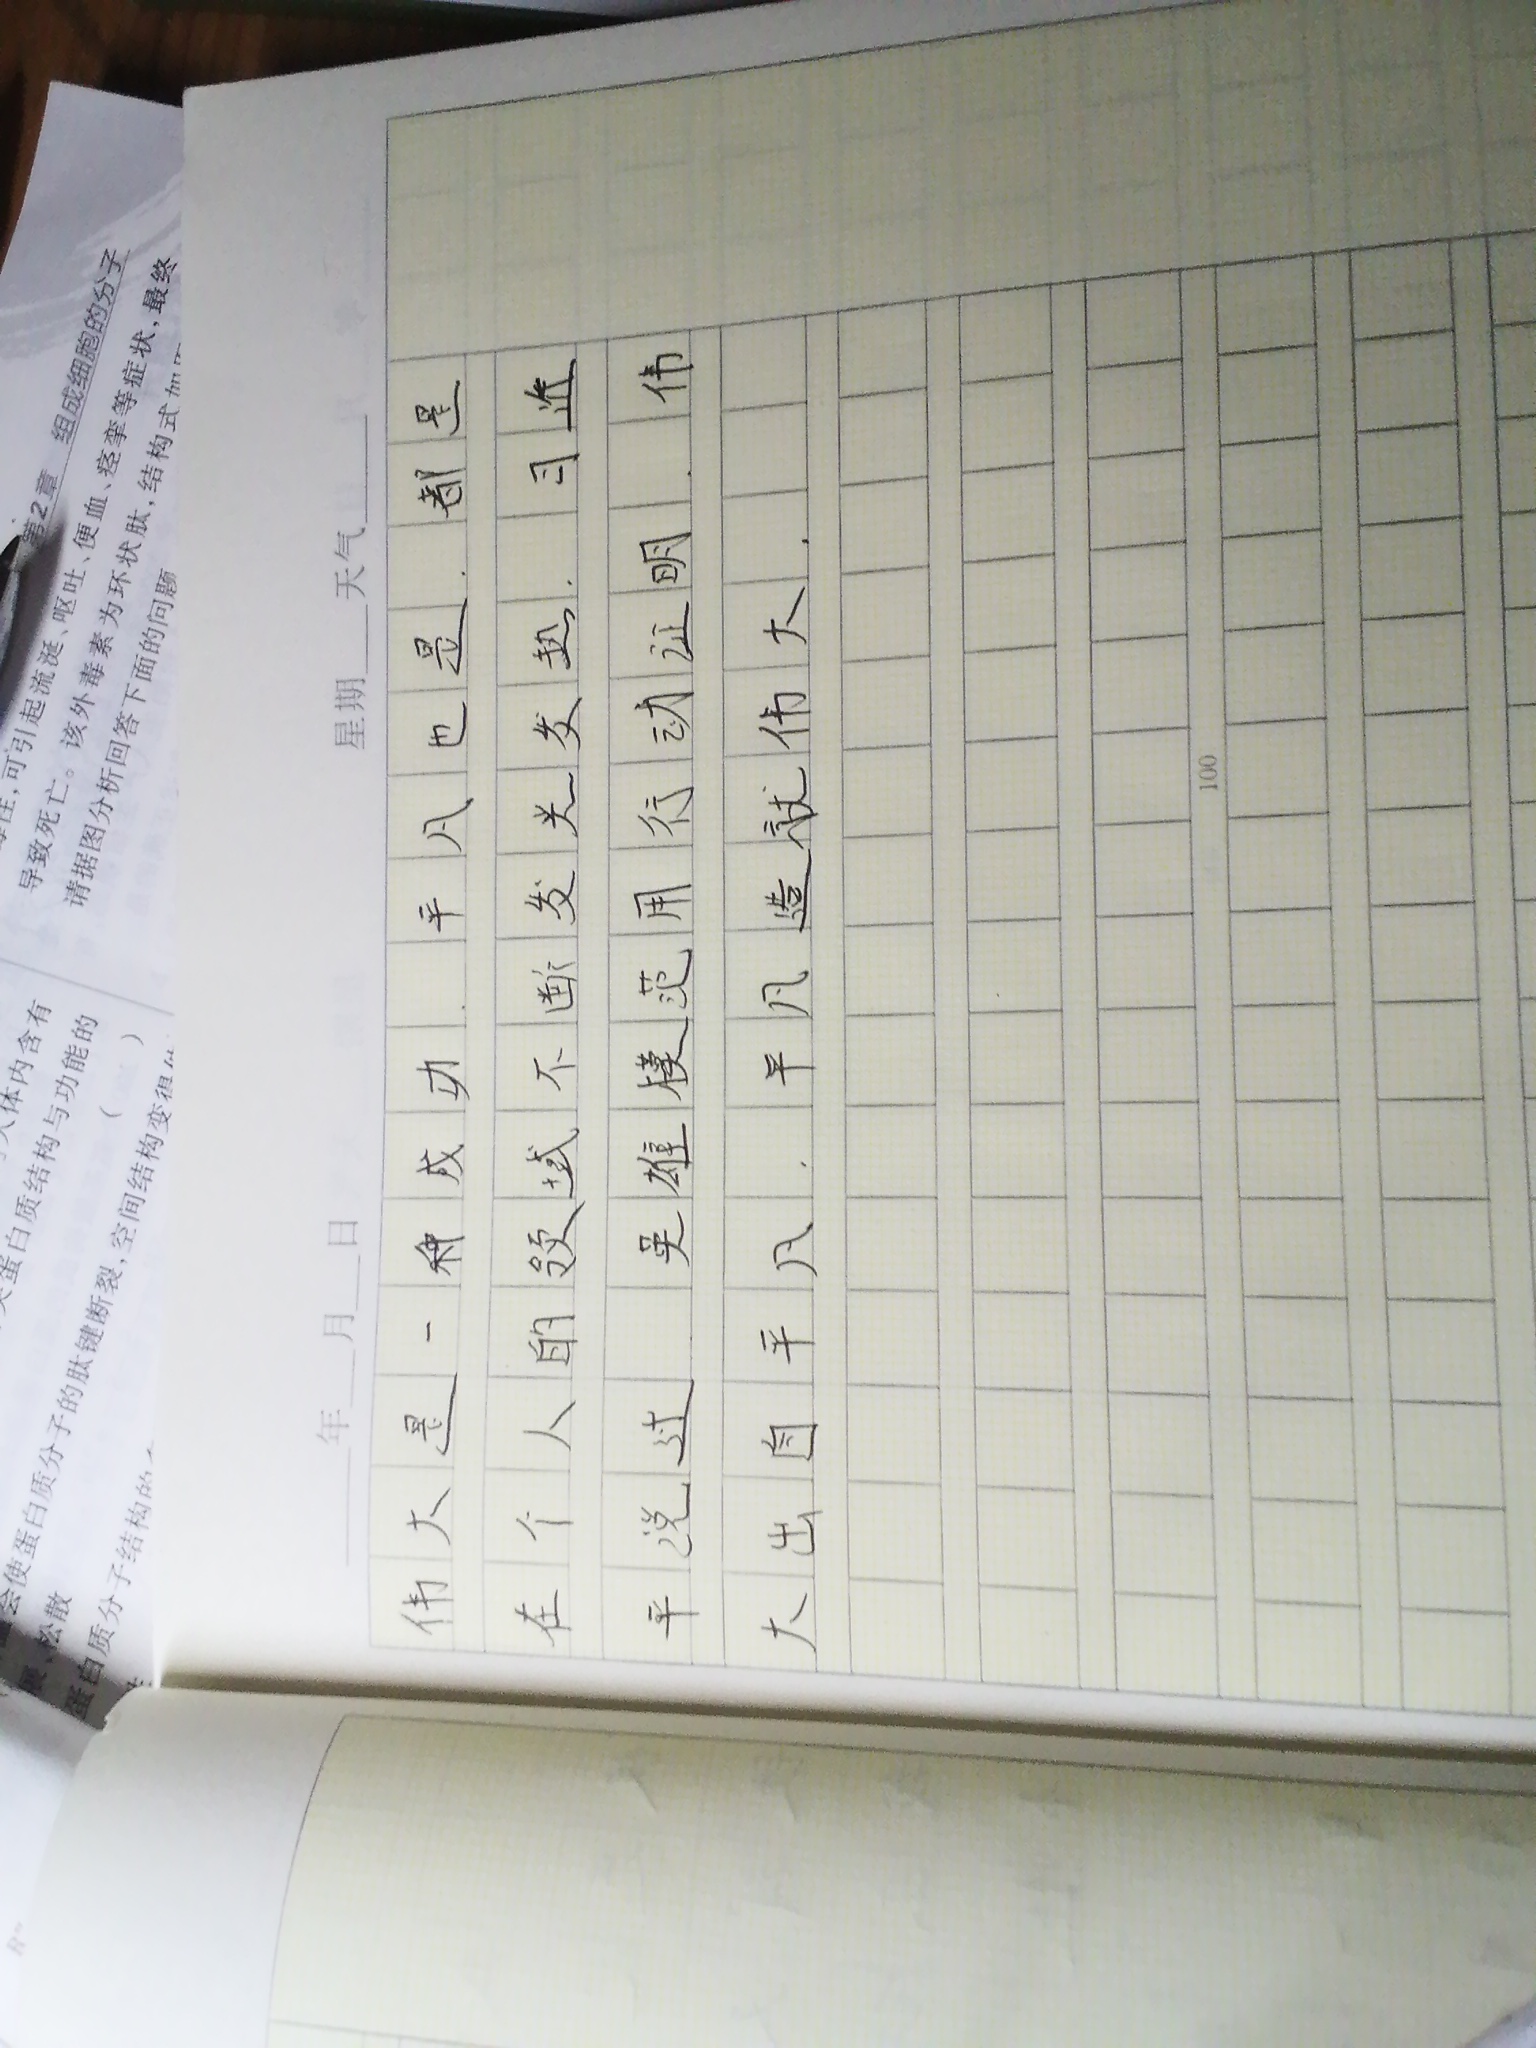 第2章 组成细胞的分子
可引起流涎、呕吐、便血、痉挛等症状,最终
导致死亡。该外毒素为环状肽,结构式如图
请据图分析回答下面的问题
人体内含有
蛋白质结构与功能的
( )
会使蛋白质分子的肽键断裂,空间结构变得
松散
蛋白质分子结构的
年 月 日 星期 天气
伟大是一种成功.平凡也是.都是
在个人的领域不断发光发热.习近
平说过 英雄模范用行动证明.伟
大出自平凡.平凡造就伟大.
100